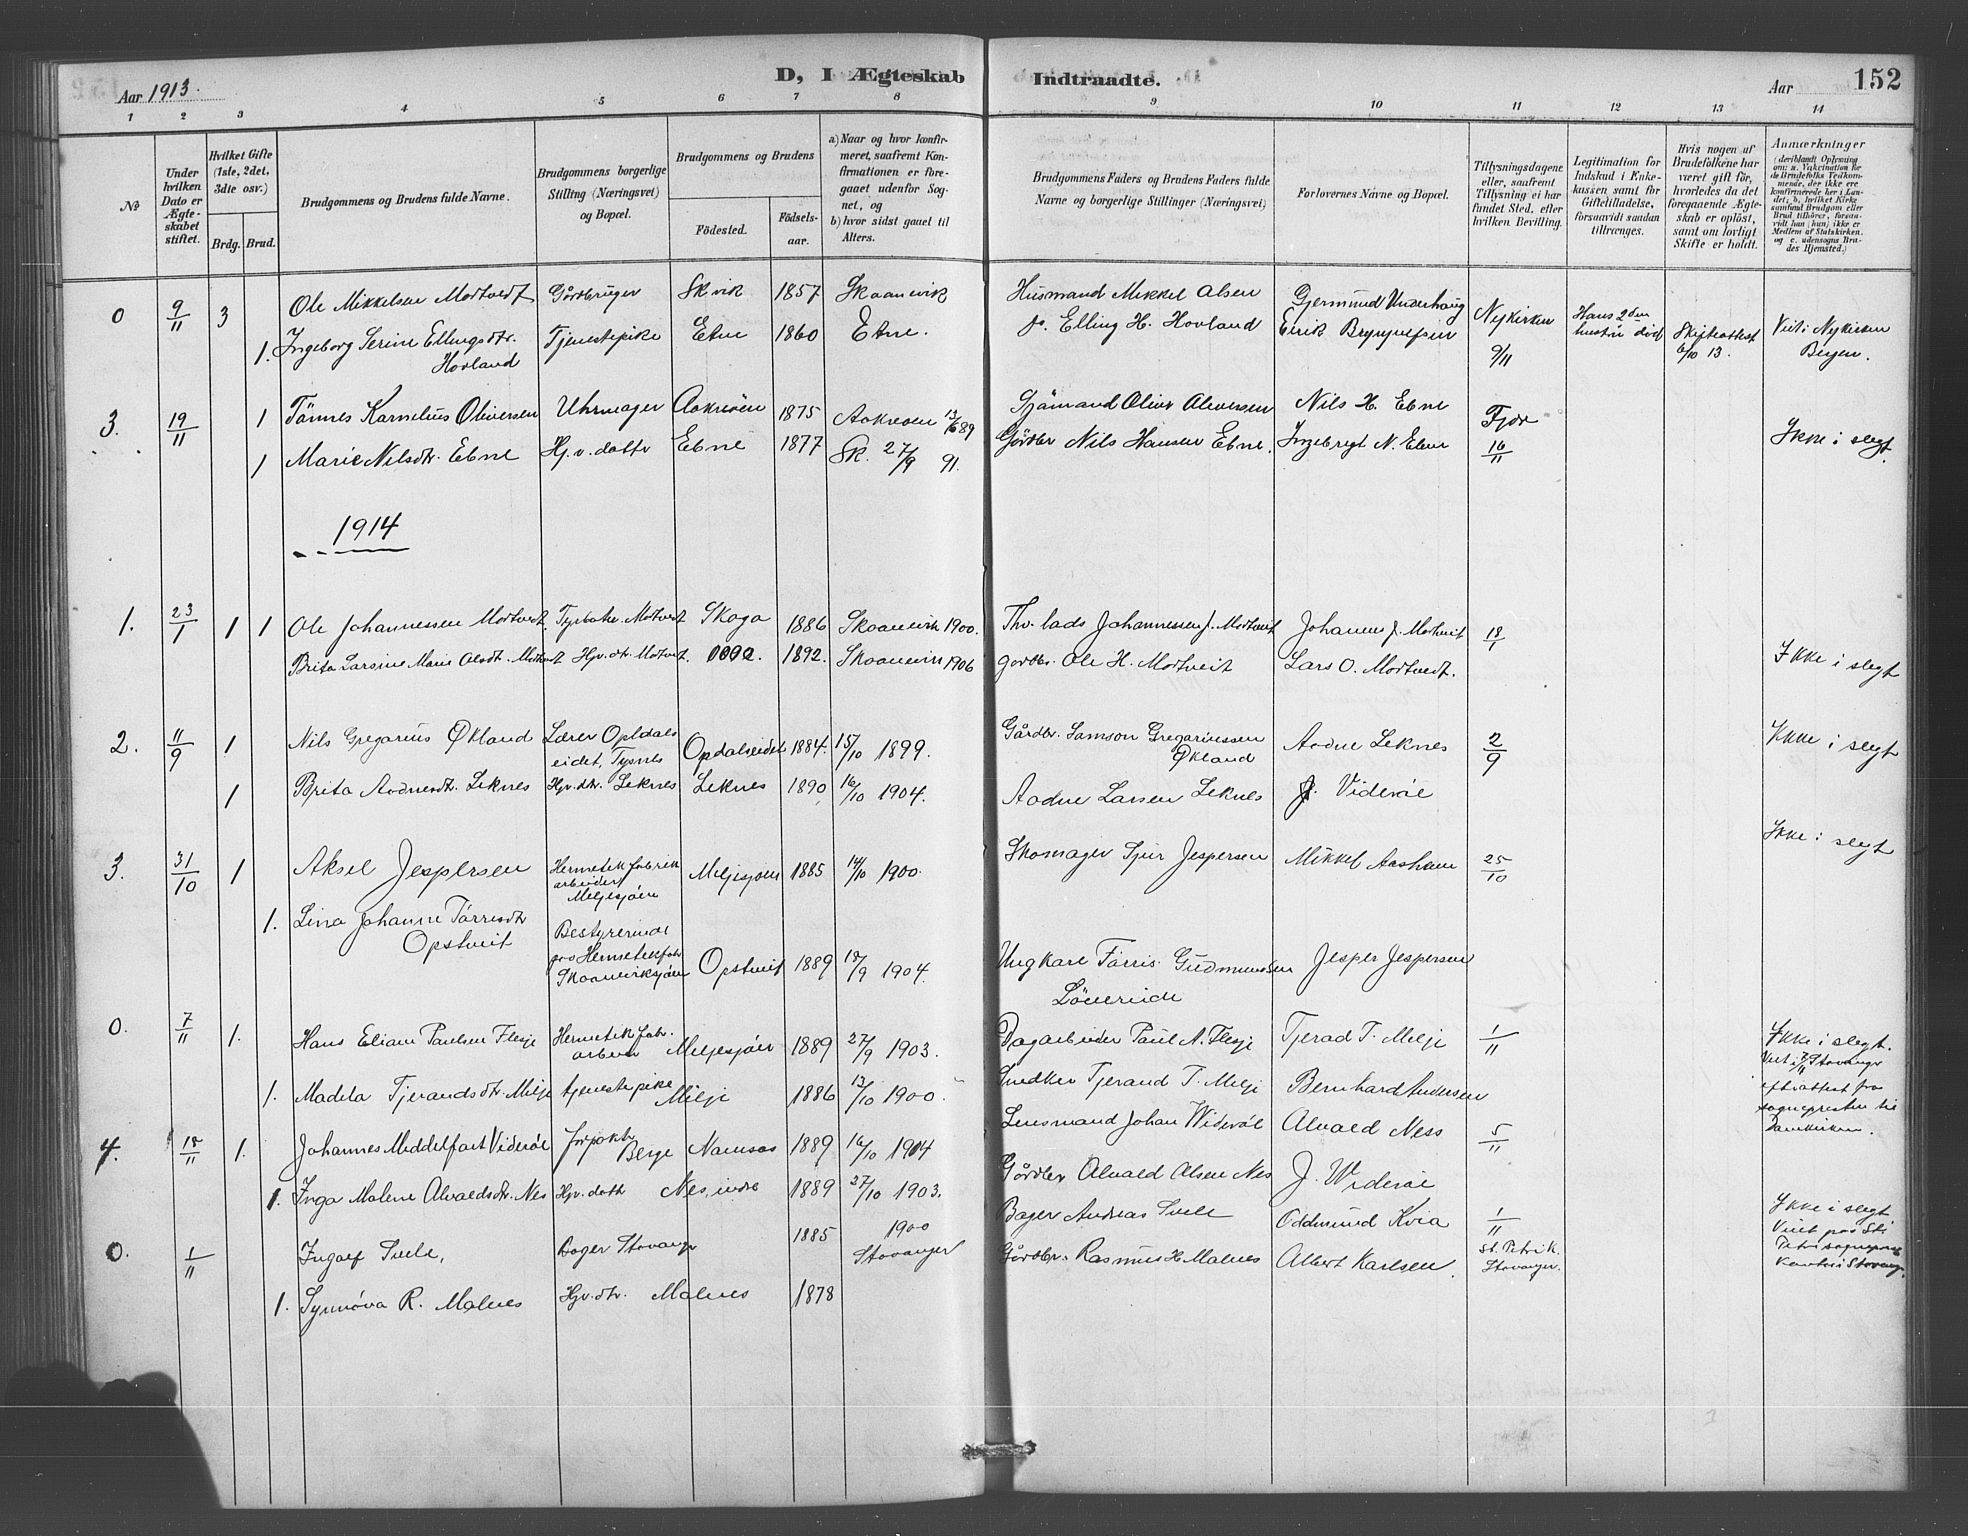 Aar 1913.
D, I Ægteskab Indtraadte.
Aar
152
1 2 3 4 5 6 7 8 9 10 11 12 13 14
№
Under hvilken Dato er Ægteskabet stiftet.
Hvilket Gifte (1ste, 2det, 3die osv.)
Brdg. Brud.
Brudgommens og Brudens fulde Navne.
Brudgommens borgerlige Stilling (Næringsvei) og Bopæl.
Brudgommens og Brudens
Födested.
Födselsaar.
a) Naar og hvor konfirmeret, saafremt Konfirmationen er foregaaet udenfor Sognet, og
b) hvor sidst gaaet til Alters.
Brudgommens Faders og Brudens Faders fulde Navne og borgerlige Stillinger (Næringsvei)
Forlovernes Navne og Bopæl.
Tillysningsdagene eller, saafremt Tillysning ei har fundet Sted, efter hvilken Bevilling.
Legitimation for Indskud i Enkekassen samt for Giftetilladelse, forsaavidt saadan tiltrænges.
Hvis nogen af Brudefolkene har været gift för, hvorledes da det foregaaende Ægteskab er oplöst, samt om lovligt Skifte er holdt.
Anmærkninger
(deriblandt Oplysning om: a. Vakcination for de Brudefolks Vedkommende, der ikke ere konfirmerede her i Landet; b. hvilket Kirkesamfund Brudgom eller Brud tilhörer, forsaavidt han (hun) ikke er Medlem af Statskirken, og c. udensogns Brudes Hjemsted.)
0 9/11 3 Ole Mikkelsen Mortvedt Gårdbruger Skvik 1857 Skaanevik Husmand Mikkel Olsen Gjermund Underhaug Nykirken Hans 2den hustru död Skifteattest 6/10 13. Viet i Nykirken Bergen.
1. Ingeborg Serine Ellingsdtr. Hovland Tjenestepike Etne 1860 Etne. do. Elling H. Hovland Eirik Brynjulfsen 9/11
3. 19/11 1 Tönnes Karnelius Oliversen Uhrmager Aakreöen 1875 Aakreöen 13/6 89 Sjömand Oliver Oliversen Nils H. Ebne Fjor 16/11 Ikke i slegt.
1 Marie Nilsdtr. Ebne Hj.v. datter Ebne 1877 Sk. 27/9 91. Gårdbr Nils Hansen Ebne. Ingebrigt N. Ebne
1914
1. 23/1 1 1 Ole Johannessen Mortvedt. Mortvedt Skoga 1886 Skaanevik 1900. Johannessen J. Mortveit Johannes J. Mortveit 18/1
Brita Larsine Marie Olsdt. Mortvedt Hjv. dtr. Mortvet. 1892. Skaanevik 1906 gardbr. Ole H. Mortveit Lars O. Mortvedt. Ikke i slegt
2. 11/9 1 Nils Gregarius Økland Lærer Opdalseidet, Tysnes Opdalseidet 1884. 15/10 1899. Gårdbr. Samson Gregariussen Økland Aadne Leknes 2/9 Ikke i slegt
1 Brita Aadnesdtr. Leknes Hjv. dtr. Leknes Leknes 1890 16/10 1904. Aadne Larsen Leknes J. Videröe
3. 31/10 1 Aksel Jespersen Hermetikfabrik arbeider Meljesjöen Meljesjöen 1885 14/10 1900. Skomager Sjur Jespersen Mikkel Aasheim 25/10 Ikke i slegt
1. Lina Johanne Törresdtr Opstveit Bestyrerinde paa Hermetikfabr Skaaneviksjöen Opstveit 1889 18/9 1904. Ungkarl Törris Gudmundsen Jesper Jespersen
0. 7/11 1. Hans Eliam Paulsen Flesje Hermetikfabr. arbeider Meljesjöen 1889 27/9 1903. Dagarbeider Paul N. Flesje Tjerad T. Melje 1/11 Ikke i slegt.
Viet i 7/11 Stavanger efter attest fra sognepresten til Domkirken.
1. Madela Tjerandsdtr. Melje tjenestepike Melje 1886 13/10 1900. Snedker Tjerand T. Melje Bernhard Andersen
4. 18/11 1. Johannes Middelfart Videröe forpakter Berge Namsos 1889 16/10 1904 Lensmand Johan Wideröe Alvald Ness 5/11
1. Inga Malene Alvaldsdtr. Nes Hjv. datt. Nes, indre 1889 27/10 1903. Gårdbr Alvald Olsen Nes J. Wideröe
0. 1/11 Ingolf Svele, Bager Stavanger 1885 1900 Stavanger Bager Andreas Svele Oddmund Kvia 1/11 St. Petrik. Stavanger. Ikke i slegt
Viet paa St. Petri sogneprestkontor i Stavanger.
1. Synnöva R. Malnes Hjv. dtr. Malnes 1878 Gårdbr. Rasmus H. Malnes Albert Karlsen.